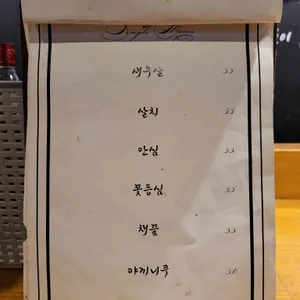 Simple Menu
새우살 33
살치 33
안심 33
꽃등심 33
채끝 33
야끼니쿠 30